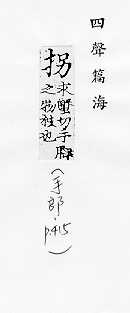 四聲篇海
拐
求蟹切手腳
之物枝也
(手部.
p.415
)